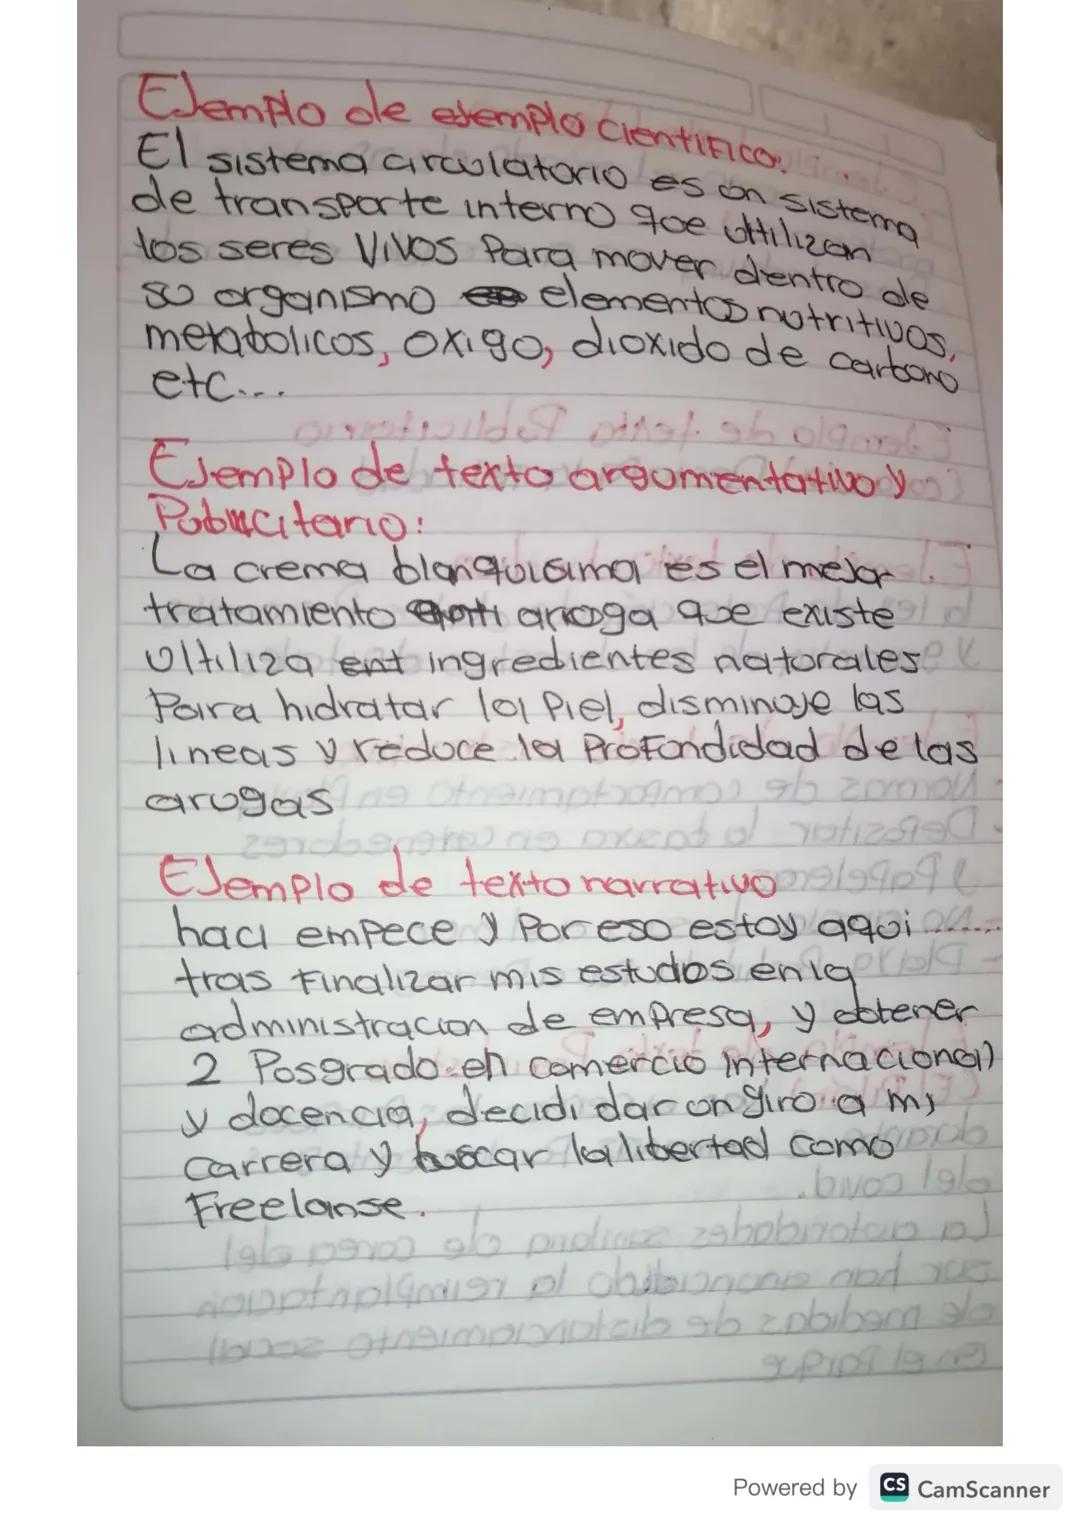 Ejemplo de ejemplo cientifico:
El sistema circulatorio es un sistema
de transporte interno que uttilizan
los seres vivos para mover dentro de
su organismo elementos nutritivos,
metabolicos, oxigo, dioxido de carbono
etc....
Ejemplo de texto argumentativo y
Publicitario:
La crema blanquisima es el mejor
tratamiento anti arroga que existe
Ultiliza ent ingredientes naturales
Para hidratar la Piel, disminuye las
lineas y reduce la Profundidad de las
arugas
Ejemplo de texto narrativo
haci empece y Por eso estoy aqui ....
tras Finalizar mis estudos en la
administracion de empresa, y obtener
2 Posgrado en comercio internacional
y docencia, decidi dar un giro a mi
carrera y buscar la libertad como
Freelanse.
Powered by CS CamScanner